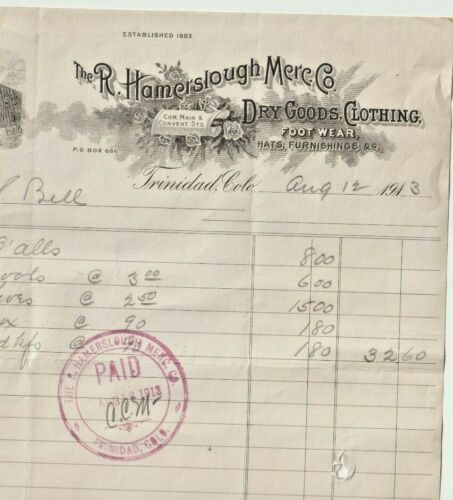 ESTABLISHED 1883.
The R. Hamerslough Merc. Co.
COR. MAIN &
CONVENT STS.
DRY GOODS, CLOTHING,
FOOT WEAR,
HATS, FURNISHINGS, &C.
P.O. BOX 686
Trinidad, Colo. Aug 12 1913
Bell
'alls 800
@ 3 00 600
@ 2 50 1500
@ 90 180
@ 180 32,60
THE R. HAMERSLOUGH MERC. CO.
PAID
1913
TRINIDAD, COLO.